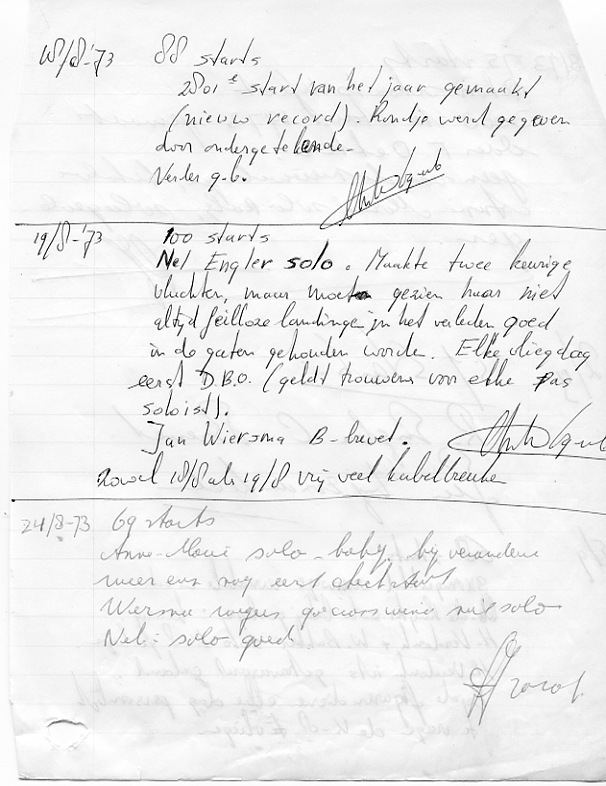 18/8-'73 88 starts
2801e start van het jaar gemaakt
(nieuw record). Rondje werd gegeven
door ondergetekende-
Verder g.b.
19/8-'73 100 starts
Nel Engler solo. Maakte twee keurige
vluchten, maar moet gezien haar niet
altijd feilloze landingen in het verleden goed
in de gaten gehouden worden. Elke vliegdag
eerst D.B.O. (geldt trouwens voor elke pas
solist).
Jan Wiersma B-brevet.
Zowel 18/8 als 19/8 vrij veel kabelbreuken
24/8-73 69 starts
Anne-Marie solo-baby, bij verandere
weer eens nog eerst checkstart
Wiersma wegens niet solo
Nel: solo goed